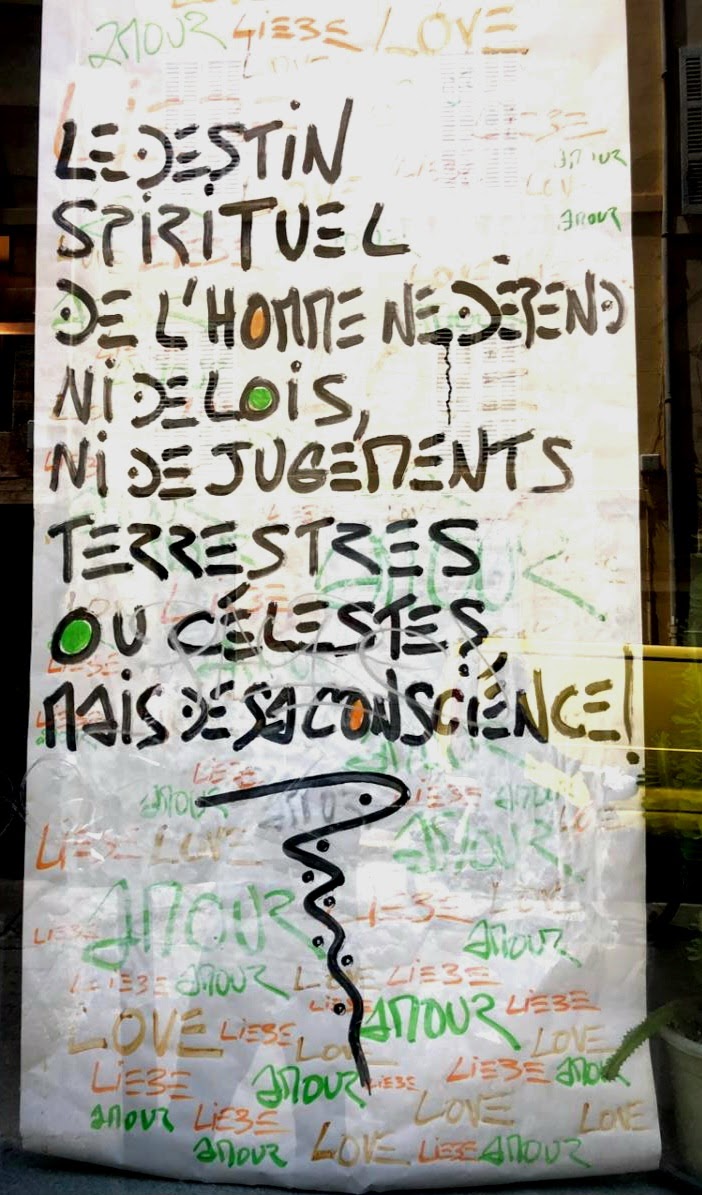 AMOUR LIEBE LOVE
LIEBE
AMOUR
LOVE
AMOUR
LE DESTIN
SPIRITUEL
DE L'HOMME NE DÉPEND
NI DE LOIS,
NI DE JUGEMENTS
TERRESTRES
OU CÉLESTES,
MAIS DE SA CONSCIENCE!
LIEBE
AMOUR LIEBE AMOUR
LOVE
LIEBE LOVE AMOUR
AMOUR LIEBE LOVE
LIEBE AMOUR
LIEBE AMOUR LOVE LIEBE
LIEBE AMOUR LIEBE
LOVE LIEBE LOVE LOVE
LIEBE AMOUR LIEBE LIEBE AMOUR
AMOUR LIEBE LOVE LOVE
AMOUR LOVE LIEBE AMOUR